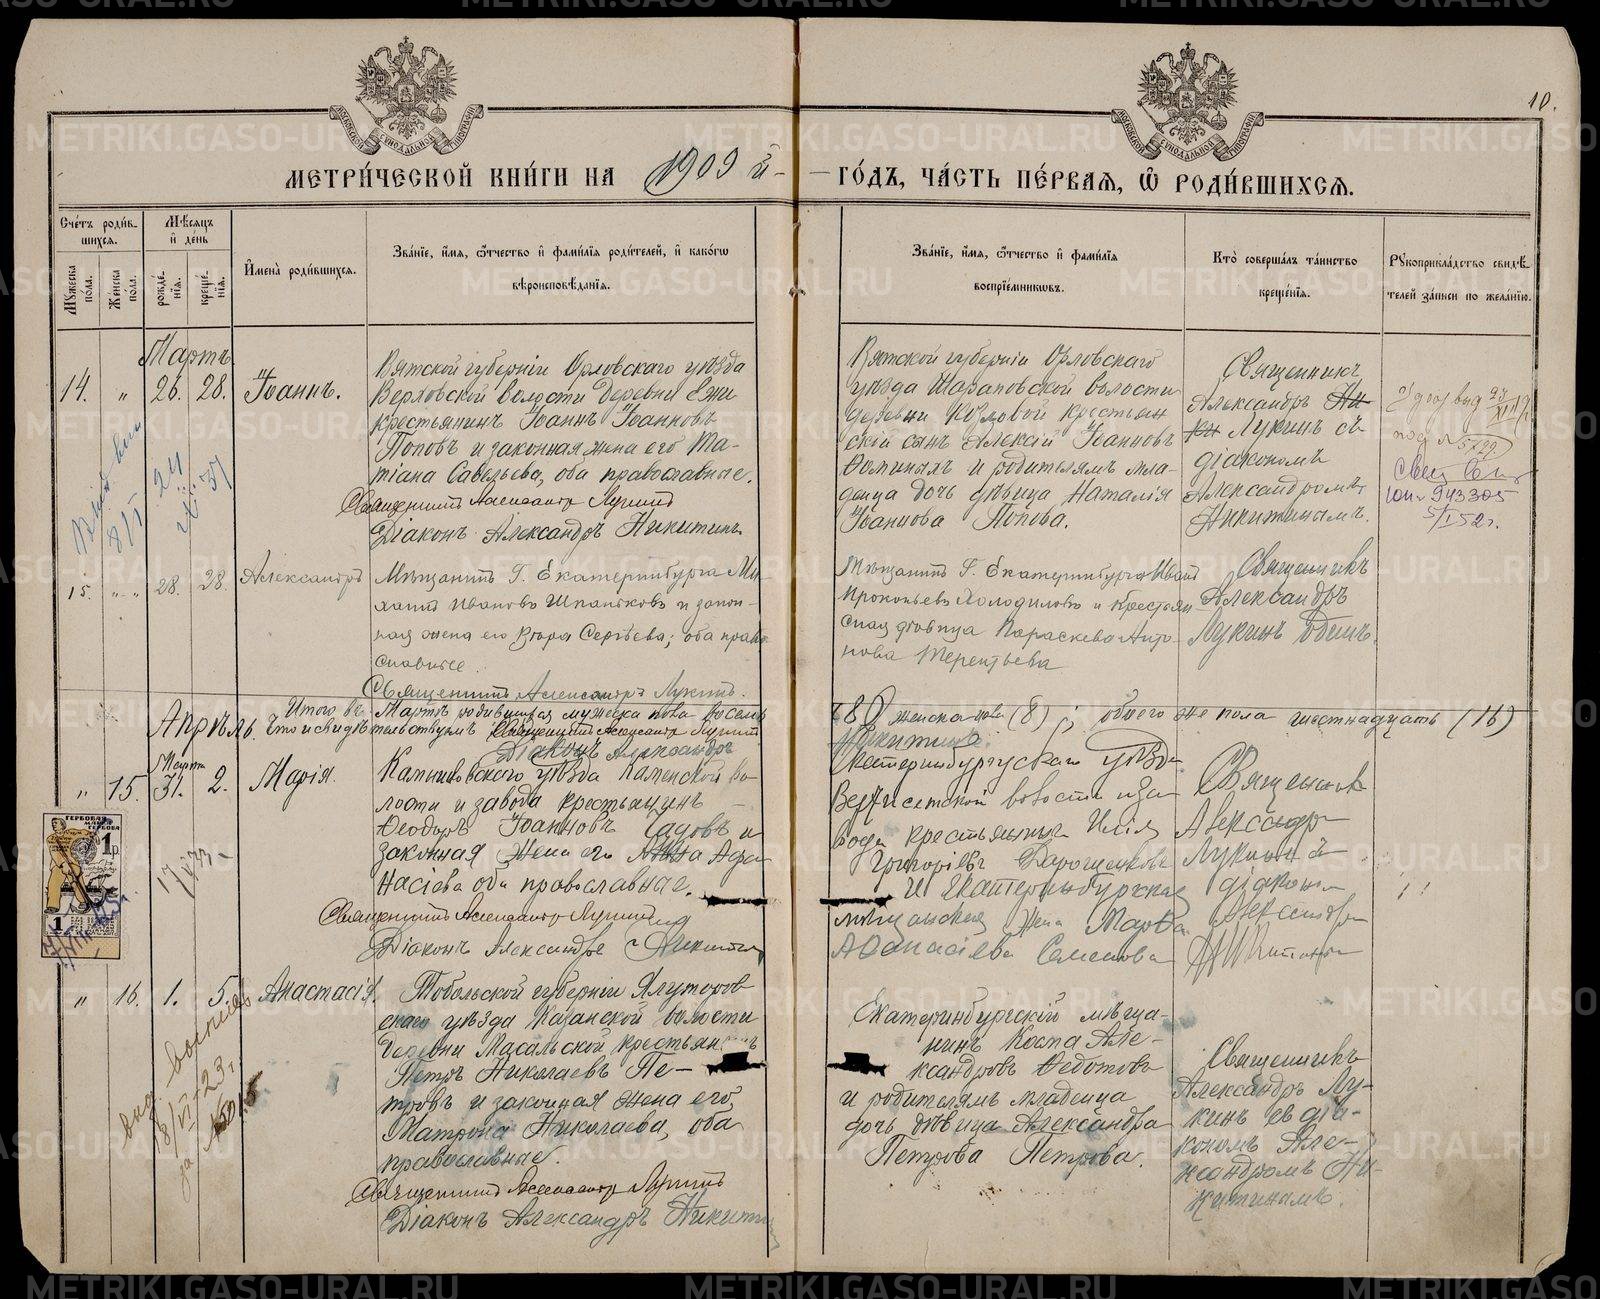 10.
МЕТРИ́ЧЕСКОЙ КНИ́ГИ НА 1909 й - ГО́ДЪ, ЧА́СТЬ ПЕ́РВАЯ, Ѿ РОДИ́ВШИХСЯ.
Счетъ роди́в-
шихся.
Мꙋжеска по́ла.
Же́нска по́ла.
Мѣ́сяцъ и де́нь
рожде́-
нїя.
креще́-
нїя.
И҆мена̀ роди́вшихся.
Зва́нїе, и҆́мя, ѻ҆́тчество и҆ фами́лїя роди́телей, и҆ како́гѡ
вѣроисповѣ́данїя.
Зва́нїе, и҆́мя, ѻ҆́тчество и҆ фами́лїя
воспрїе́мникѡвъ.
Кто̀ соверша́лъ та́инство
креще́нїя.
Рꙋкоприкла́дство свидѣ́-
телей за́писи по жела́нїю.
Мартъ
14. " 26. 28. Іоаннъ.
Вятской губерніи Орловскаго уѣзда
Верховской волости деревни
крестьянинъ Іоаннъ Іоанновъ
Поповъ и законная жена его Та-
тіана Савельева, оба православные.
Священникъ Александръ Лукинъ
Діаконъ Александръ Никитинъ
Вятской губерніи Орловскаго
уѣзда Шараповской волости
деревни Козловой крестьян
скій сынъ Алексій Іоанновъ
Ѳоминыхъ и родителямъ мла-
денца дочь дѣвица Наталія
Іоаннова Попова.
Священникъ
Александръ Ни-
ки Лукинъ съ
діакономъ
Александромъ
Никитинымъ.
943305
5/I 52г.
15. " 28. 28. Александръ
Мѣщанинъ Г. Екатеринбурга Ми-
хаилъ Ивановъ и закон-
ная жена его Сергѣева; оба право
славные.
Священникъ Александръ Лукинъ.
Мѣщанинъ Г. Екатеринбурга Иванъ
Прокопьевъ Холодиловъ и крестьян
ская дѣвица Параскева Анто-
нова Терентьева
Священникъ
Александръ
Лукинъ одинъ.
Итого въ Мартѣ родившихся мужеска пола восемь (8) женска пола (8); обоего же пола шестнадцать (16)
Что и свидѣтельствуемъ Священникъ Александръ Лукинъ
Діаконъ Александръ Никитинъ.
Апрѣль.
Марта
" 15. 31. 2. Марія
Камышловскаго уѣзда Каменской во-
лости и завода крестьянинъ
Ѳеодоръ Іоанновъ Садовъ и
законная жена его Анна Афа-
насіева оба православные.
Священникъ Александръ Лукинъ
Діаконъ Александръ Никитинъ
Екатеринбургскаго уѣзда
Верхисетской волости и за-
вода крестьянинъ Илія
Григоріевъ
и Екатеринбургская
мѣщанская жена Марѳа
Аѳанасіева Семенова
Священникъ
Александръ
Лукинъ и
діаконъ
Александръ
Никитинъ
ГЕРБОВАЯ МАРКА
1 р
" 16. 1. 5. Анастасія
Тобольской губерніи Ялуторов
скаго уѣзда Казанской волости
деревни Масальской крестьянинъ
Петръ Николаевъ Пе-
тровъ и законная жена его,
Матрона Николаева, оба
православные.
Священникъ Александръ Лукинъ
Діаконъ Александръ Никитинъ
Екатеринбургскій мѣща-
нинъ Але-
ксандровъ Ѳедотовъ
и родителямъ младенца
дочь дѣвица Александра
Петрова Петрова.
Священникъ
Александръ Лу-
кинъ съ діа-
кономъ Але-
ксандромъ Ни-
китинымъ.
METRIKI.GASO-URAL.RU